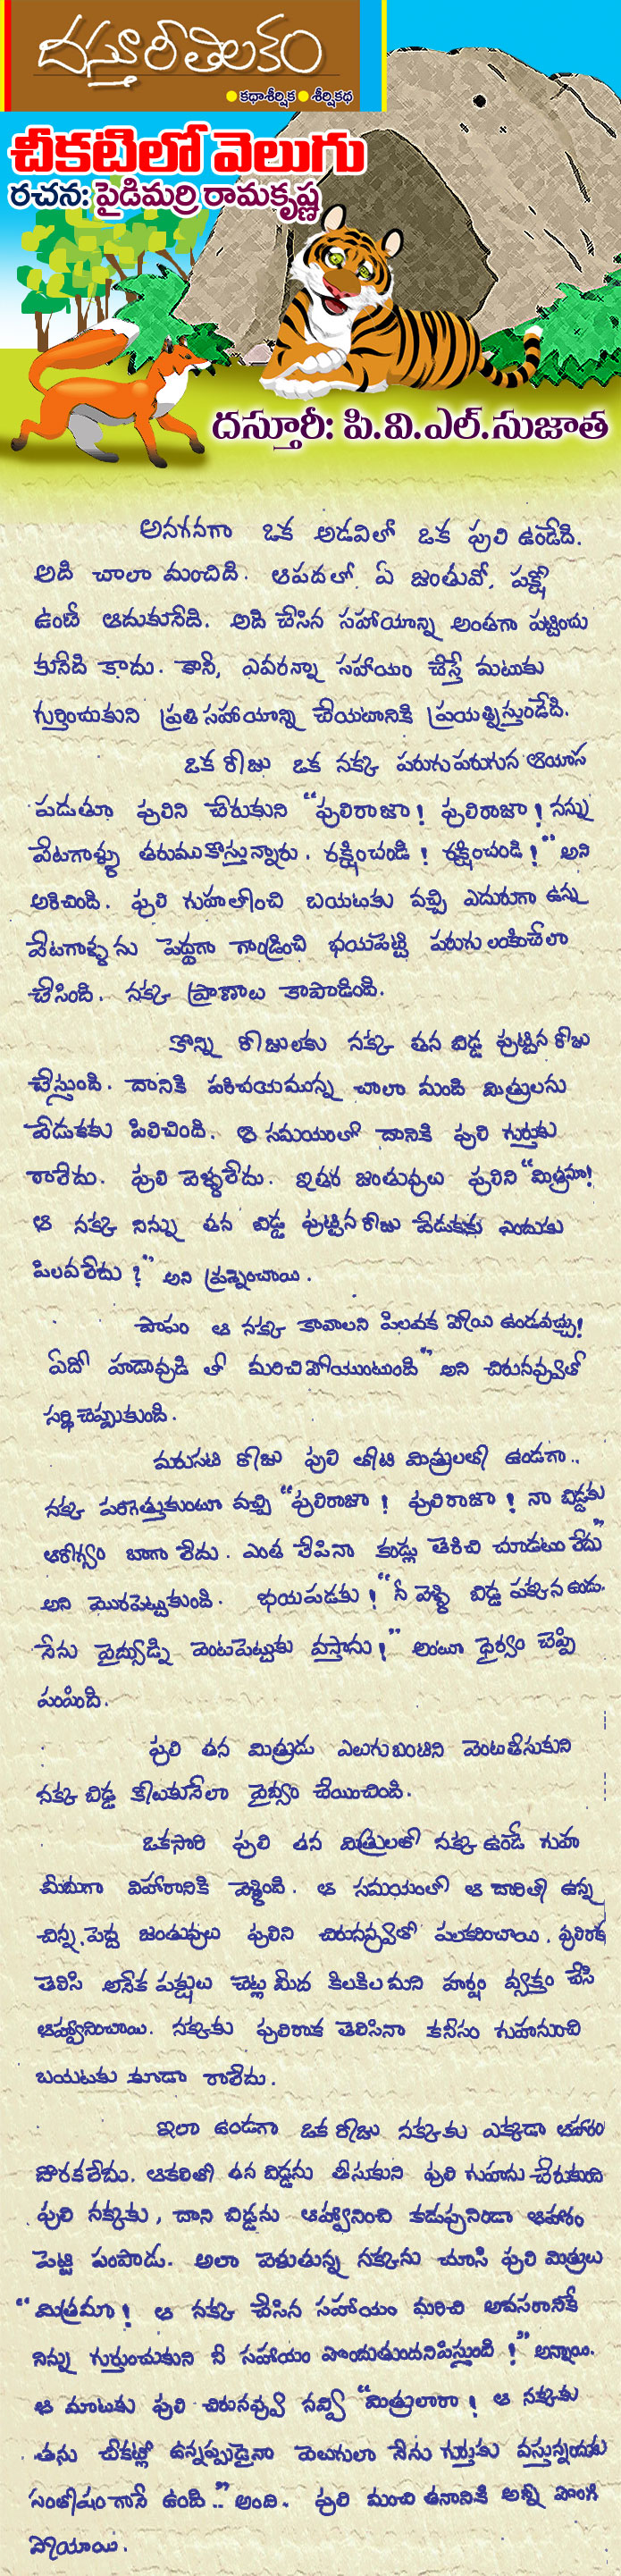 దస్తూరీతిలకం
కథాశీర్షిక శీర్షికథ
చీకటిలో వెలుగు
రచన: పైడిమర్రి రామకృష్ణ
దస్తూరీ: పి.వి.ఎల్.సుజాత
అనగనగా ఒక అడవిలో ఒక పులి ఉండేది.
అది చాలా మంచిది. ఆపదలో, ఏ జంతువో, పక్షో
ఉంటే ఆదుకునేది. అది చేసిన సహాయాన్ని అంతగా పట్టించు
కునేది కాదు. కానీ, ఎవరన్నా సహాయం చేస్తే మటుకు
గుర్తించుకుని ప్రతి సహాయాన్ని చేయటానికి ప్రయత్నిస్తుండేది.
ఒక రోజు ఒక నక్క పరుగుపరుగున ఆయాస
పడుతూ పులిని చేరుకుని "పులిరాజా! పులిరాజా! నన్ను
వేటగాళ్ళు తరుముకొస్తున్నారు. రక్షించండి! రక్షించండి!" అని
అరిచింది. పులి గుహలోంచి బయటకు వచ్చి ఎదురుగా ఉన్న
వేటగాళ్ళను పెద్దగా గాండ్రించి భయపెట్టి పరుగు లంకించేలా
చేసింది. నక్క ప్రాణాలు కాపాడింది.
కొన్ని రోజులకు నక్క తన బిడ్డ పుట్టిన రోజు
చేస్తుంది. దానికి పరిచయమున్న చాలా మంది మిత్రులను
వేడుకకు పిలిచింది. ఆ సమయంలో దానికి పులి గుర్తుకు
రాలేదు. పులి వెళ్ళలేదు. ఇతర జంతువులు పులిని "మిత్రమా!
ఆ నక్క నిన్ను తన బిడ్డ పుట్టినరోజు వేడుకకు ఎందుకు
పిలవలేదు?" అని ప్రశ్నించాయి.
పాపం ఆ నక్క కావాలని పిలవక పోయి ఉండవచ్చు!
ఏదో హడావుడి తో మరిచిపోయుంటుంది" అని చిరునవ్వుతో
సర్ది చెప్పుకుంది.
మరుసటి రోజు పులి తోటి మిత్రులతో ఉండగా..
నక్క పరిగెత్తుకుంటూ వచ్చి "పులిరాజా! పులిరాజా! నా బిడ్డకు
ఆరోగ్యం బాగా లేదు. ఎంత లేపినా కండ్లు తెరిచి చూడటం లేదు"
అని మొరపెట్టుకుంది. భయపడకు! "నీ వెళ్ళి బిడ్డ పక్కన ఉండు.
నేను వైద్యుడ్ని వెంటపెట్టుకు వస్తాను!" అంటూ ధైర్యం చెప్పి
పంపింది.
పులి తన మిత్రుడు ఎలుగుబంటిని వెంటతీసుకుని
నక్క బిడ్డ కోలుకునేలా వైద్యం చేయించింది.
ఒకసారి పులి తన మిత్రులతో నక్క ఉండే గుహ
మీదుగా విహారానికి వెళ్ళింది. ఆ సమయంలో ఆ దారిలో ఉన్న
చిన్న, పెద్ద జంతువులు పులిని చిరునవ్వుతో పలకరించాయి. పులిరాక
తెలిసి అనేక పక్షులు చెట్ల మీద కిలకిల మని హర్షం వ్యక్తం చేసి
ఆహ్వానించాయి. నక్కకు పులిరాక తెలిసినా కనీసం గుహనుంచి
బయటకు కూడా రాలేదు.
ఇలా ఉండగా ఒక రోజు నక్కకు ఎక్కడా ఆహారం
దొరకలేదు. ఆకలితో తన బిడ్డను తీసుకుని పులి గుహను చేరుకుంది
పులి నక్కకు, దాని బిడ్డను ఆహ్వానించి కడుపునిండా ఆహారం
పెట్టి పంపాడు. అలా వెళుతున్న నక్కను చూసి పులి మిత్రులు
"మిత్రమా! ఆ నక్క చేసిన సహాయం మరిచి అవసరానికే
నిన్ను గుర్తుంచుకుని నీ సహాయం పొందుతుందనిపిస్తుంది!" అన్నాయి.
ఆ మాటకు పులి చిరునవ్వు నవ్వి "మిత్రులారా! ఆ నక్కకు
తను చీకట్లో ఉన్నప్పుడైనా వెలుగులా నేను గుర్తుకు వస్తున్నందుకు
సంతోషంగానే ఉంది.." అంది. పులి మంచి తనానికి అన్నీ పొంగి
పోయాయి.